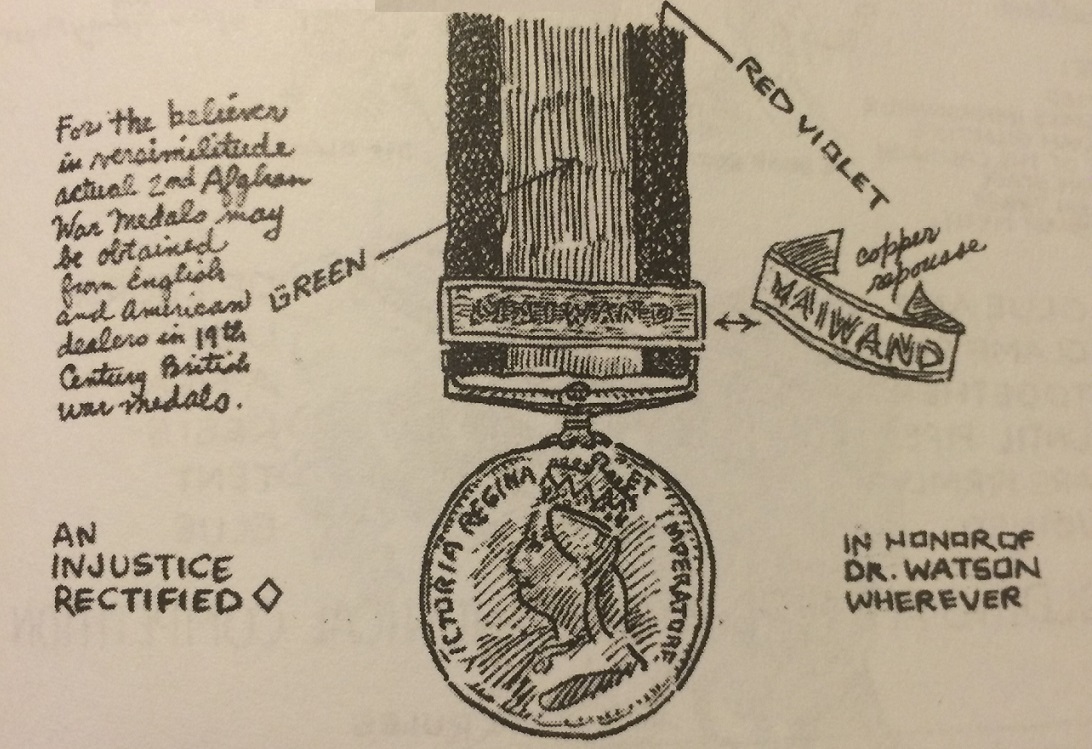 For the believer
in versimilitude
actual 2nd Afghan
War Medals may
be obtained
from English
and American
dealers in 19th
Century British
war medals.
GREEN
RED VIOLET
MAIWAND
copper
repousse
MAIWAND
VICTORIA REGINA ET IMPERATURE
AN
INJUSTICE
RECTIFIED ◇
IN HONOR OF
DR. WATSON
WHEREVER